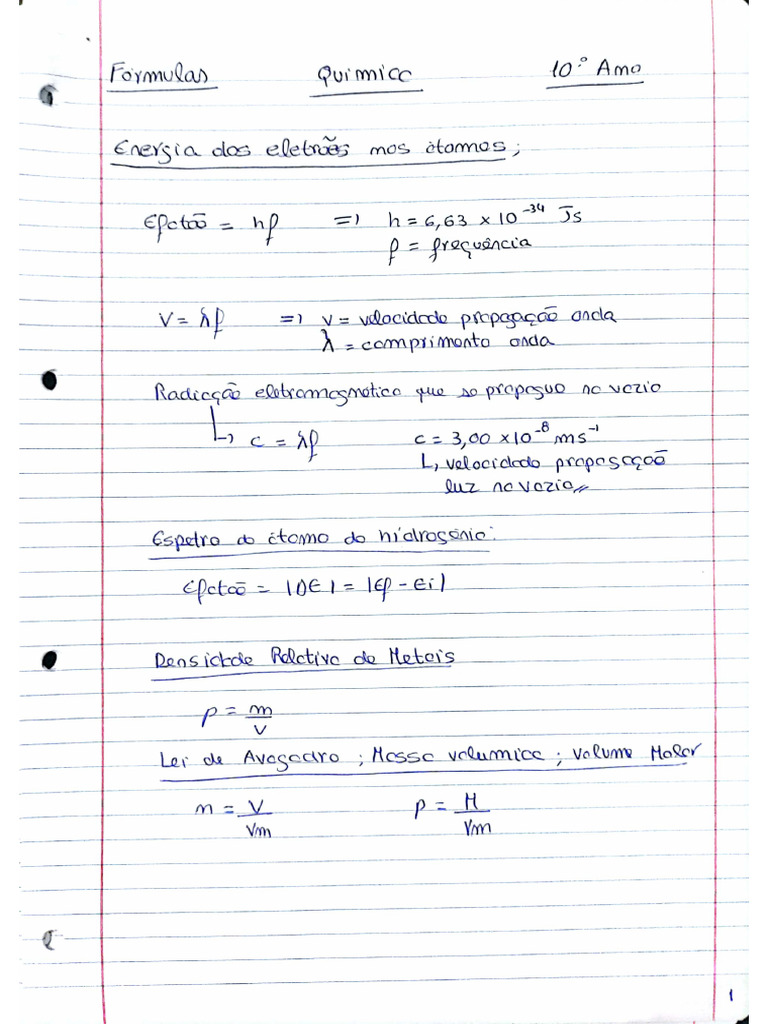 Fórmulas Química 10º Ano
Energia dos eletrões nos átomos;
Efotão = hf => h = 6,63 × 10⁻³⁴ Js
f = frequência
v = λf => v = velocidade propagação onda
λ = comprimento onda
Radiação eletromagnética que se propague no vazio
↳ c = λf c = 3,00 × 10⁻⁸ ms⁻¹
↳ velocidade propagação
luz no vazio //
Espetro do átomo do hidrogénio:
Efotão = |ΔE| = |Ef - Ei|
Densidade Relativa de Metais
ρ = m/V
Lei de Avogadro ; Massa volúmica ; Volume Molar
n = V/Vm ρ = M/Vm
1